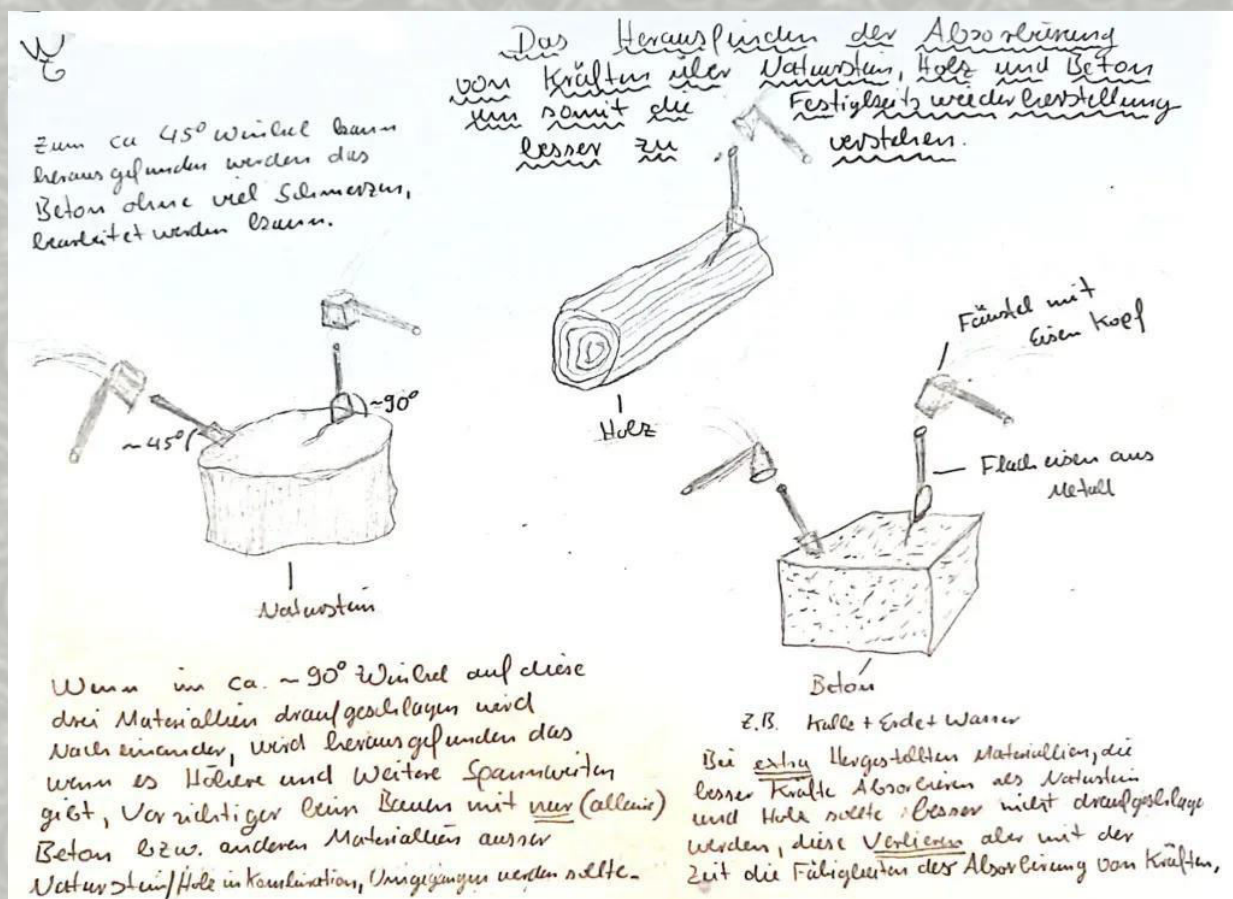 Das Herausfinden der Absorbierung
von Kräften über Naturstein, Holz und Beton
um somit die Festigkeitswiederherstellung
besser zu verstehen.
Zum ca 45° Winkel kann
herausgefunden werden das
Beton ohne viel Schmerzen,
bearbeitet werden kann.
~45°
~90°
Naturstein
Holz
Fäustel mit
Eisen Kopf
Flacheisen aus
Metall
Beton
Z.B. Kalk + Erde + Wasser
Wenn im ca. ~90° Winkel auf diese
drei Materiallien draufgeschlagen wird
Nacheinander, wird herausgefunden das
wenn es Höhere und Weitere Spannweiten
gibt, Vorsichtiger beim Bauen mit nur (alleine)
Beton bzw. anderen Materiallien ausser
Naturstein/Holz in Kombination, Umgegangen werden sollte.
Bei extra Hergestellten Materiallien, die
besser Kräfte Absorbieren als Naturstein
und Holz sollte besser nicht draufgeschlage
werden, diese Verlieren aber mit der
Zeit die Fähigkeiten der Absorbierung von Kräften,